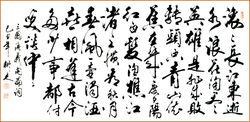 滚滚长江東逝
水浪花淘尽
英雄是非成敗
转頭空青山依
舊在几度夕陽
红白髮渔樵江
渚上惯看秋月
春風一壶浊酒
喜相逢古今
多少事都付
笑谈中
三國演義開篇词
己丑年